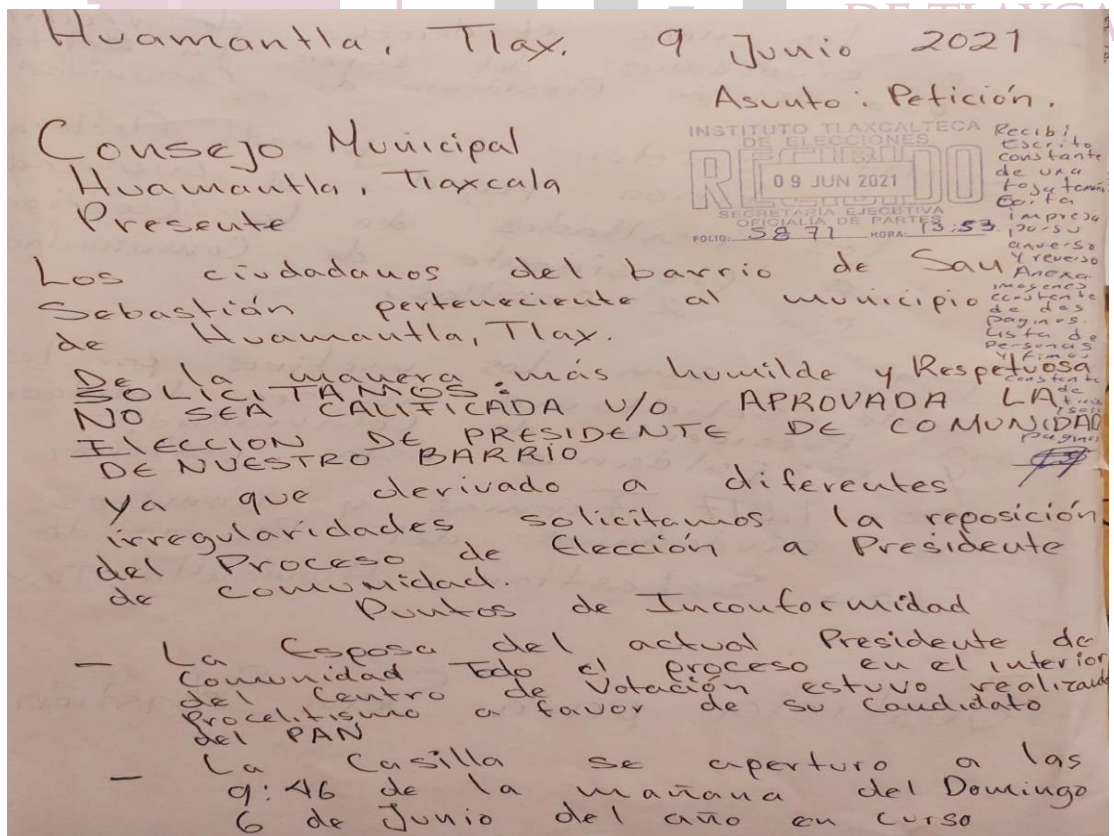 DE TLAXCA
Huamantla, Tlax. 9 Junio 2021
Asunto: Petición.
Consejo Municipal
Huamantla, Tlaxcala
Presente
INSTITUTO TLAXCALTECA
DE ELECCIONES
RECIBIDO
09 JUN 2021
SECRETARÍA EJECUTIVA
OFICIALÍA DE PARTES
FOLIO: 5871 HORA: 13:53
Recibi
Escrito
constante
de una
foja tamaño
impresa
por su
anverso
y reverso
Anexa
imagenes
constante
de dos
paginas.
Lista de
Personas
y firmas
constante
de
paginas
Los ciudadanos del barrio de San
Sebastián perteneciente al municipio
de Huamantla, Tlax.
De la manera más humilde y Respetuosa
SOLICITAMOS:
NO SEA CALIFICADA U/O APROVADA LA
ELECCION DE PRESIDENTE DE COMUNIDAD
DE NUESTRO BARRIO
ya que derivado a diferentes
irregularidades solicitamos la reposición
del Proceso de Elección a Presidente
de comunidad.
Puntos de Inconformidad
- La Esposa del actual Presidente de
Comunidad todo el proceso en el interior
del Centro de Votación estuvo realizando
Procelitismo a favor de su Candidato
del PAN
- La Casilla se aperturo a las
9:46 de la mañana del Domingo
6 de Junio del año en curso